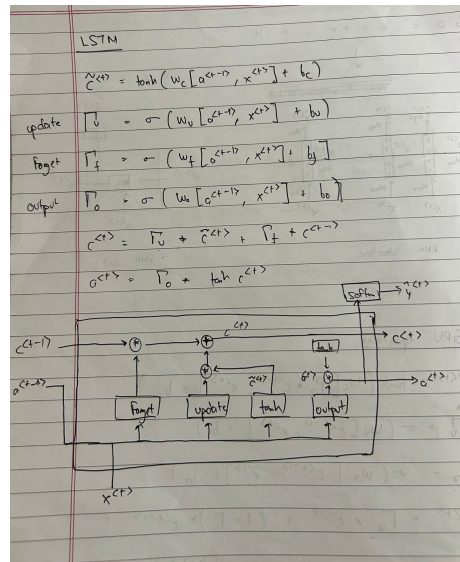 LSTM
c̃<t> = tanh(Wc[a<t-1>, x<t>] + bc)
update Γu = σ(Wu[a<t-1>, x<t>] + bu)
forget Γf = σ(Wf[a<t-1>, x<t>] + bf]
output Γo = σ(Wo[a<t-1>, x<t>] + bo)
c<t> = Γu * c̃<t> + Γf * c<t-1>
a<t> = Γo * tanh c<t>
softm ŷ<t>
c<t-1> * + c<t> c<t>
tanh
* c̃<t> *
a<t-1> a<t>
forget update tanh output
x<t>